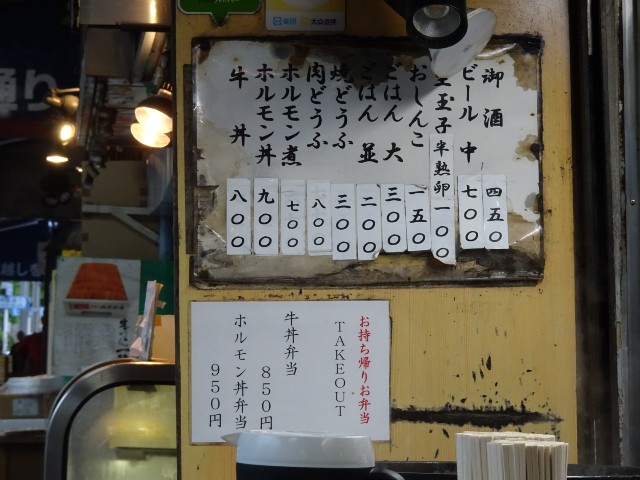 御酒 四五〇
ビール 中 七〇〇
生玉子 半熟卵 一〇〇
おしんこ 一五〇
ごはん 大 三〇〇
ごはん 並 二〇〇
焼どうふ 三〇〇
肉どうふ 八〇〇
ホルモン煮 七〇〇
ホルモン丼 九〇〇
牛丼 八〇〇
お持ち帰りお弁当
TAKEOUT
牛丼弁当
850円
ホルモン丼弁当
950円